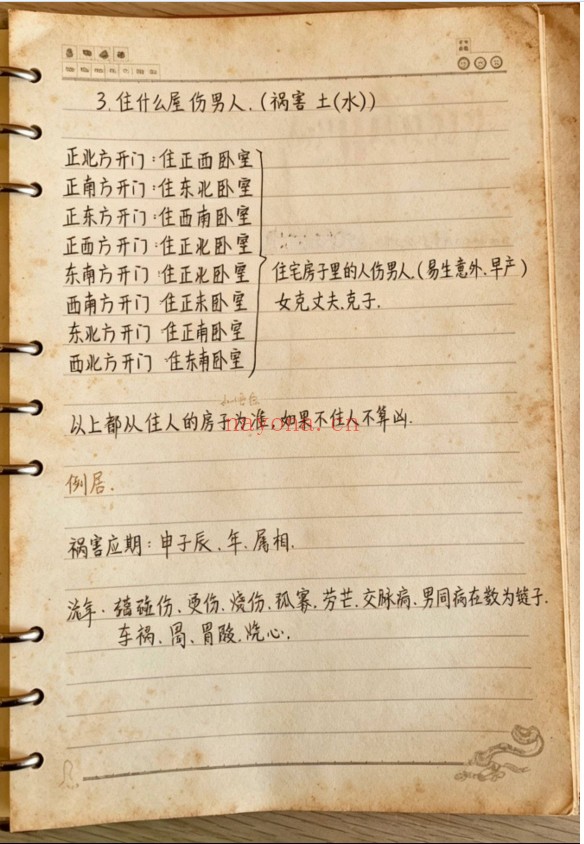 3.住什么屋伤男人.(祸害 土(水))
正北方开门:住正西卧室
正南方开门:住东北卧室
正东方开门:住西南卧室
正西方开门:住正北卧室
东南方开门:住正北卧室
西南方开门:住正东卧室
东北方开门 住正南卧室
西北方开门 住东南卧室
住宅房子里的人伤男人.(易生意外.早产)
女克丈夫.克子.
以上都从住人的房子为准.如果不住人不算凶.
nayona.cn
例居.
祸害应期:申子辰.年.属相.
流年.磕碰伤.烫伤.烧伤.孤寡.劳芒.交脉病.男同病在数为链子.
车祸.胃酸.烧心.